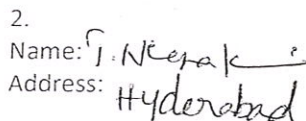 2.
Name: T. Neeraj
Address: Hyderabad